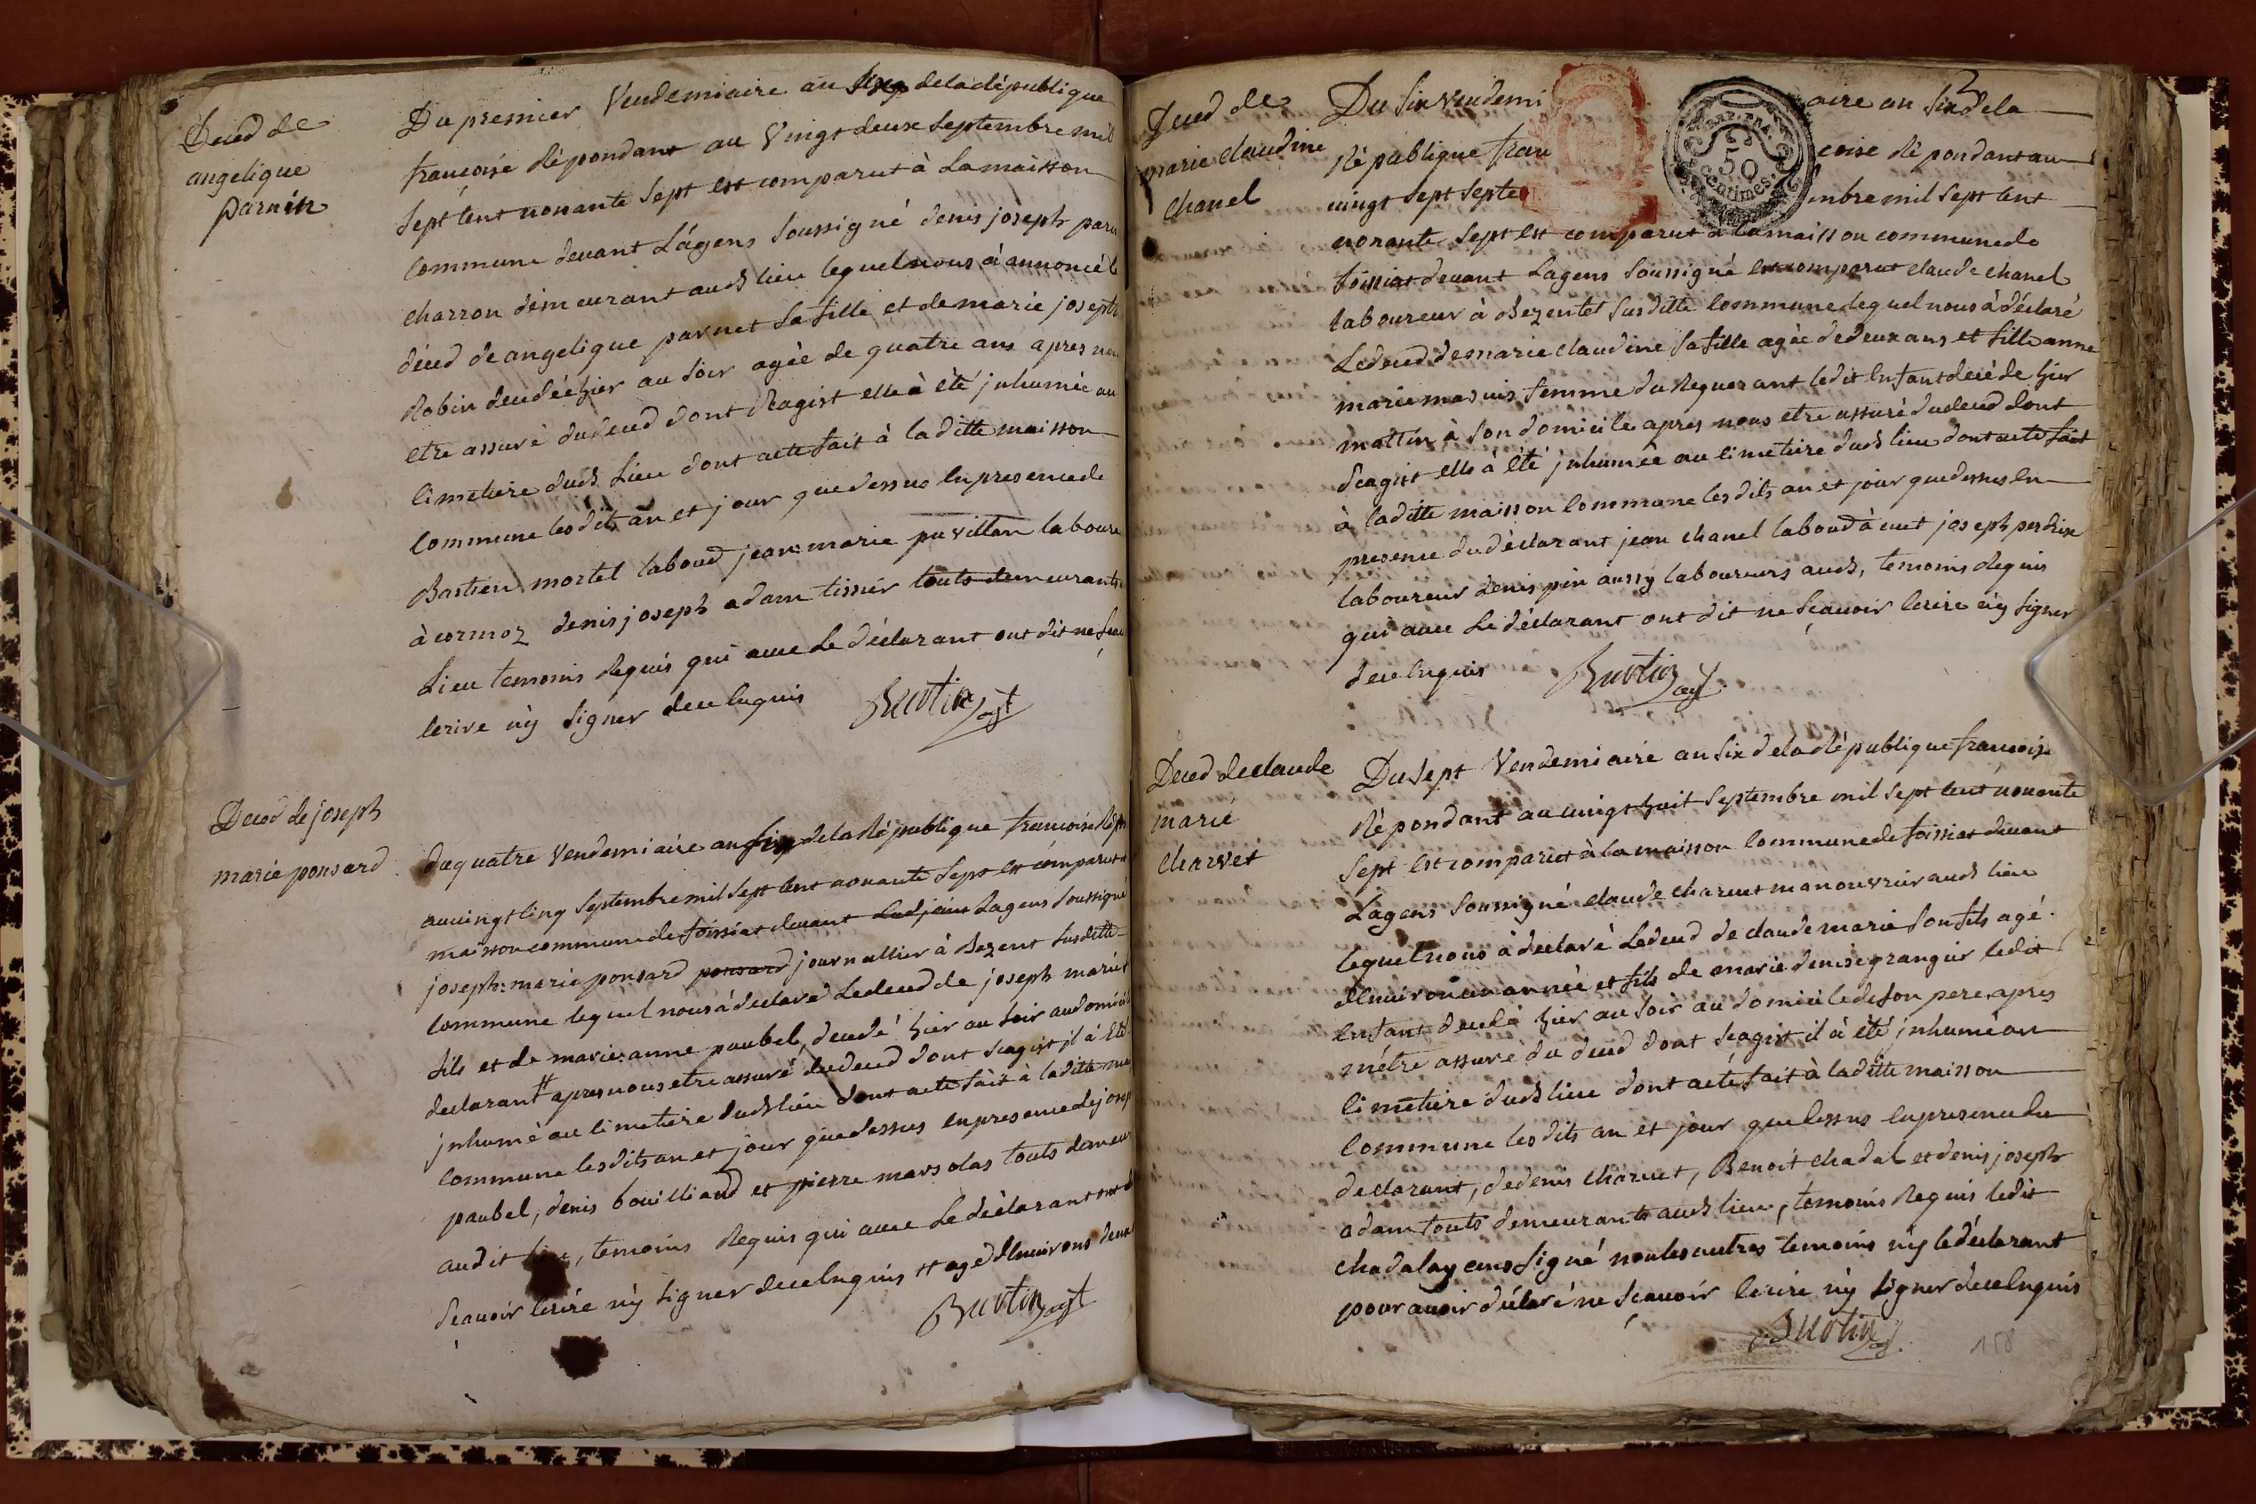 Deced de
angelique
parnin
Du premier Vendemiaire an six de la république
francoise Répondant au Vingt deux septembre mil
sept cent nonante sept est comparut à la maison
commune devant L'agens soussigné denis joseph parn
charron demeurant audt lieu lequel nous à annoncé l
déced de angelique parnet sa fille et de marie joseph
Robin decedée hier au soir agée de quatre ans apres nou
etre assuré du deced dont s'agist elle à été jnhumée au
cimetiere dudt Lieu dont acte fait à laditte maison
commune lesdits an et jour que dessus en presence de
Bastien mortel laboud jean: marie puvillan laboure
à cormoz denis joseph adam tissier touts demeurants
Lieu temoins Requis qui avec Le déclarant ont dit ne scau
ecrire n'y signer de ce enquis Buotin agt
Deced de joseph
marie ponsard
du quatre vendemiaire an six de la République francoise Rép
au vingt cinq septembre mil sept cent nonante sept est comparut
maison commune de foissiat devant Ladjoint Lagens soussigné
joseph: marie ponsard ponsard journallier à Bezent susditte
commune lequel nous à declaré Le deced de joseph marie
fils et de marie: anne paubel, decedé hier au soir au domici
declarant # apres nous etre assuré du deced dont s'agist jl à été
jnhumé au cimetiere dudt lieu dont acte fait à laditte mai
commune lesdits an et jour que dessus en presence de josep
paubel, denis bouilliaud et pierre marsolas touts demeur
audit lieu, temoins Requis qui avec Le déclarant ont d
Scauoir ecrire n'y signer de ce enquis # agé d'Enuirons deux
Buotin agt
Deced de
marie claudine
chanel
Du six vendemi aire an six de la
République fran coise Répondant au
vingt sept septe mbre mil sept cent
nonante sept est comparut à la maison commune de
foissiat devant Lagens soussigné est comparut claude chanel
laboureur à Bezentet susditte commune lequel nous à déclaré
Le deced de marie claudine sa fille agée de deux ans et fille anne
marie masuis femme du Requerant ledit enfant decédé hier
mattin à son domicile apres nous etre assuré du deced dont
S'eagist elle à été jnhumée au cimetiere dudt lieu dont acte fait
à laditte maison commune lesdits an et jour que dessus en
presence du déclarant jean chanel laboud à cuet joseph perdrix
laboureur denis pin aussy laboureurs audt, temoins Requis
qui avec Le déclarant ont dit ne Sçauoir ecrire n'y signer
de ce enquis Buotin agt
Deced de claude
marie
charvet
Du sept Vendemiaire an six de la République francoise
Répondant au vingt huit septembre mil sept cent nonante
sept est comparut à la maison commune de foissiat devant
Lagens soussigné claude charuet manouvrier audt lieu
lequel nous à declaré Le deced de claude marie son fils agé
d'Enuiron un année et fils de marie denise grangier ledit
enfant decedé hier au soir au domicile de son pere apres
m'etre assuré du deced dont s'eagist il à été jnhumé au
cimetiere dudt lieu dont acte fait à laditte maison
commune lesdits an et jour que dessus en presence du
declarant, de denis charuet, Benoit chadal et denis joseph
adam touts demeurants audt lieu, temoins Requis ledit
chadal ayans signé non les autres temoins n'y le déclarant
pour avoir déclaré ne Sçauoir ecrire n'y signer de ce enquis
Buotin agt
158
REP. FRA.
50
centimes